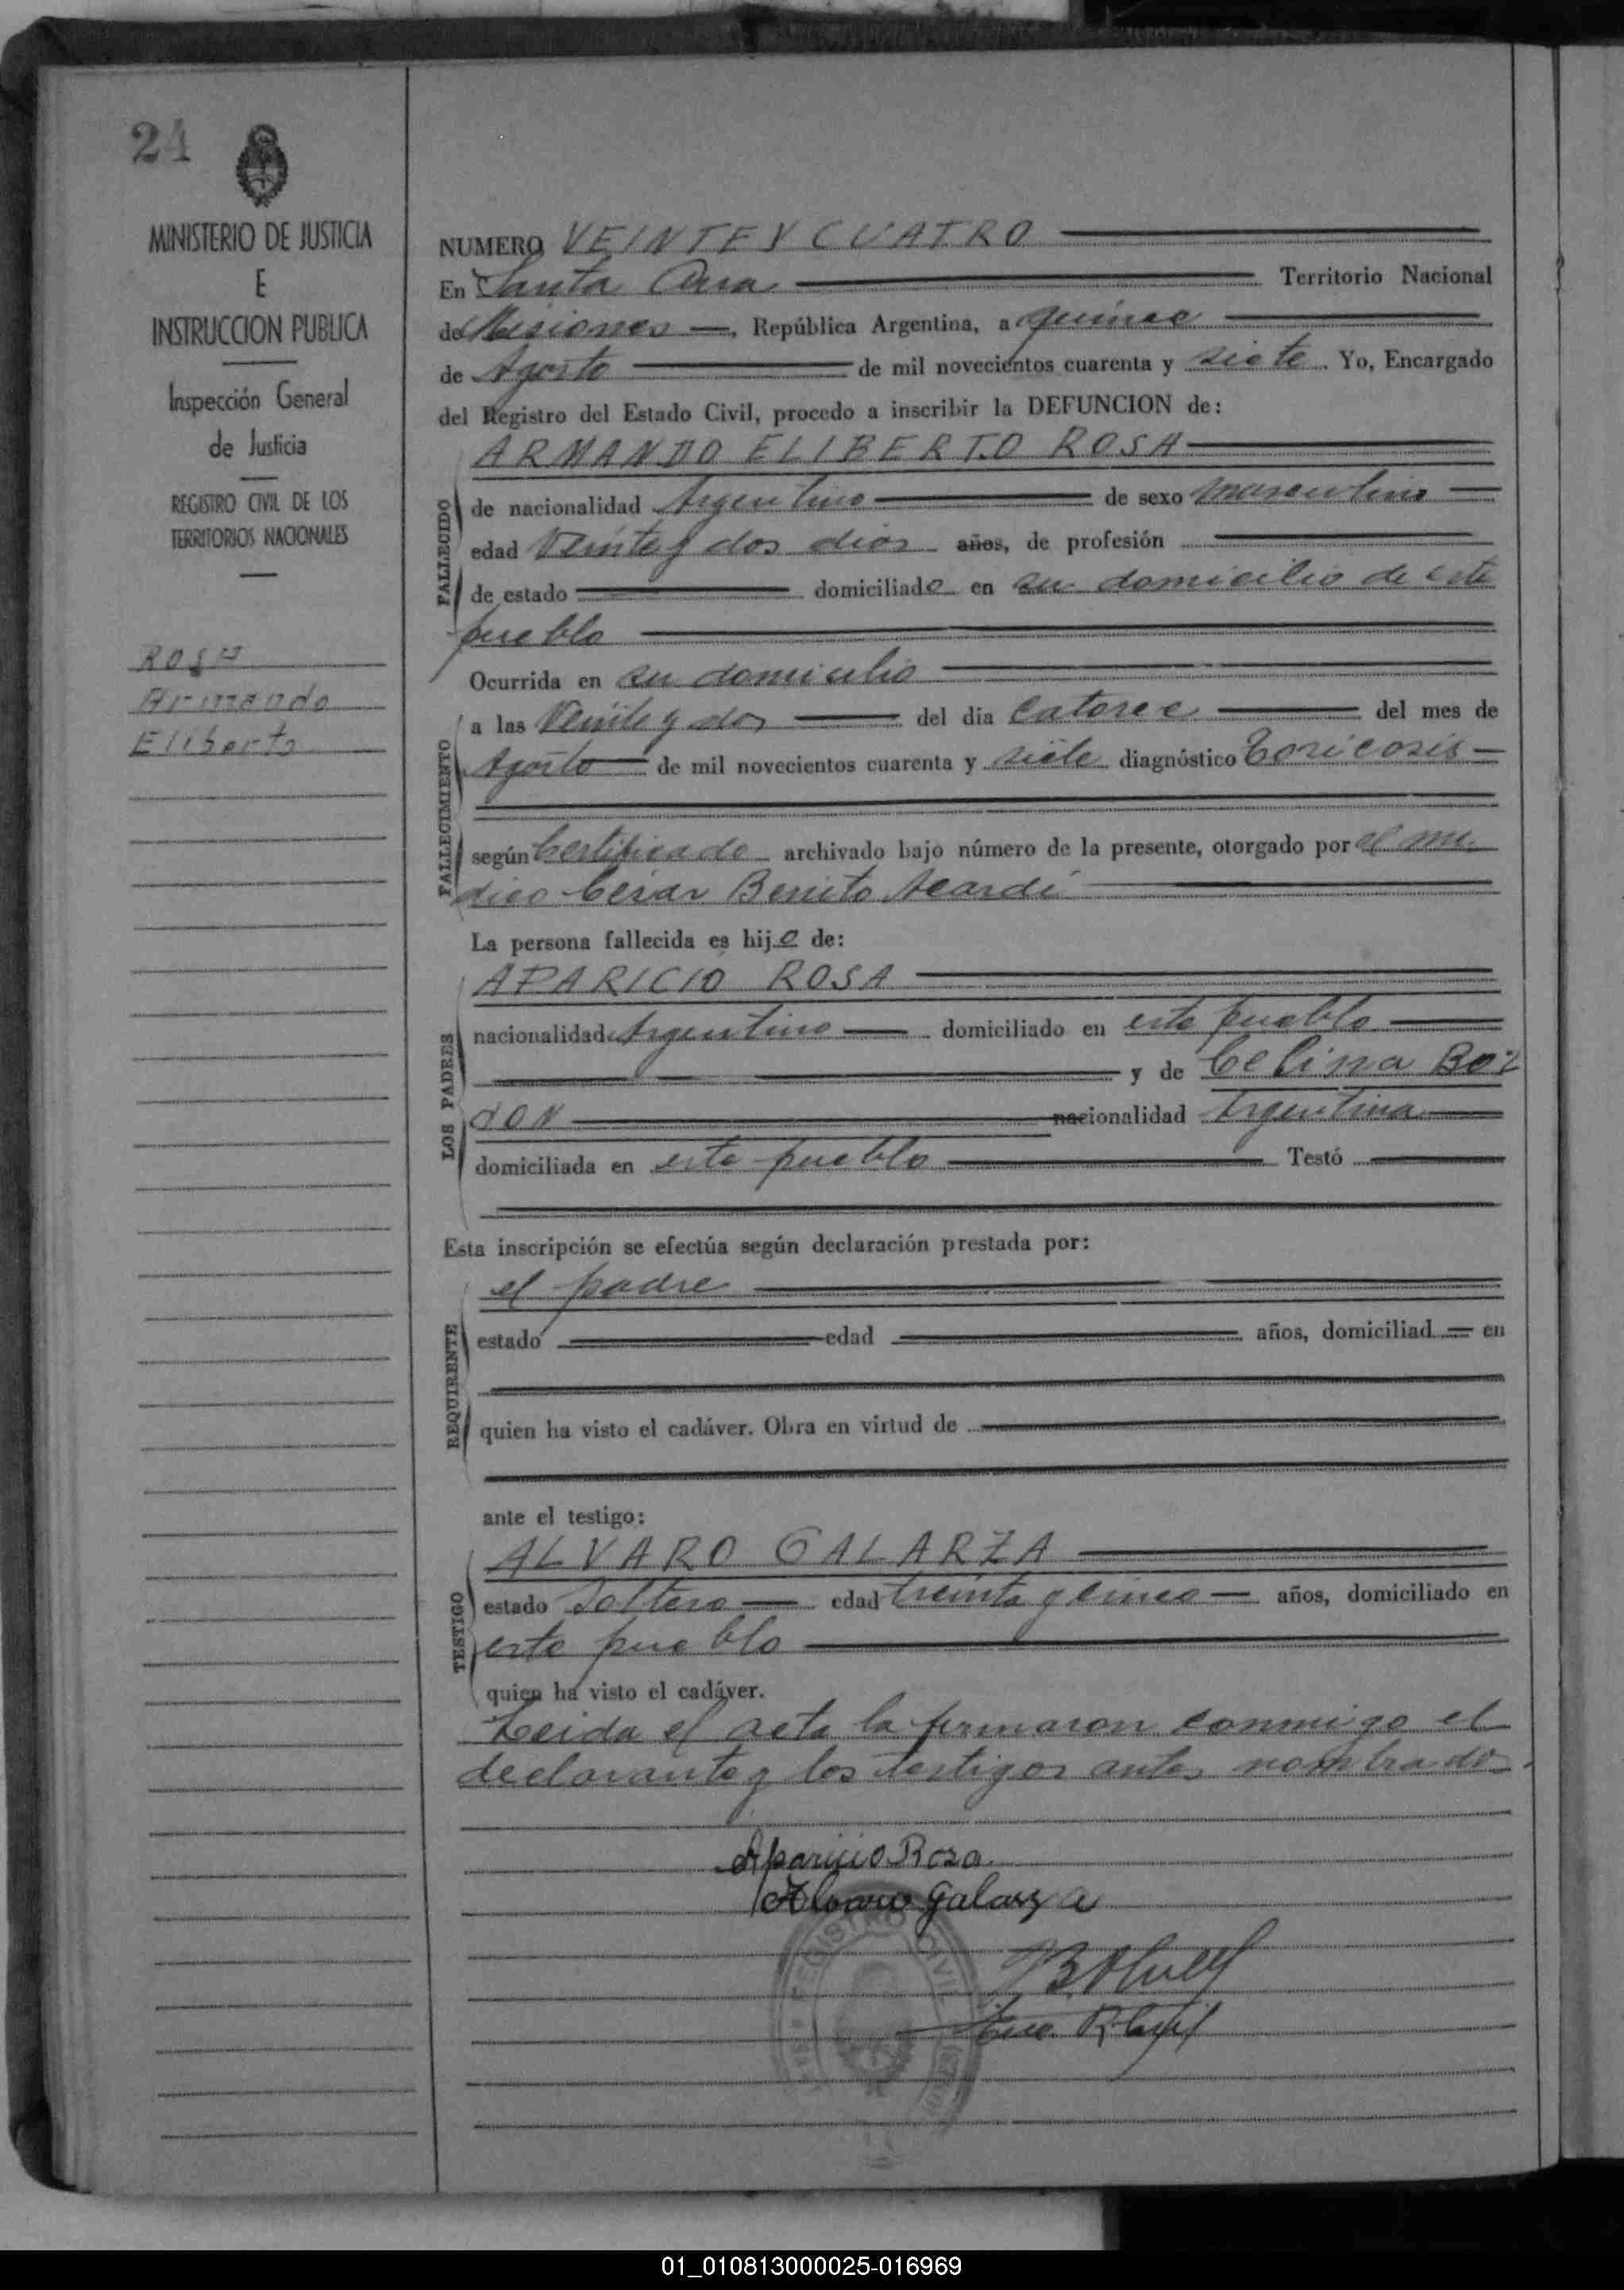 24
MINISTERIO DE JUSTICIA
E
INSTRUCCION PUBLICA
Inspección General
de Justicia
REGISTRO CIVIL DE LOS
TERRITORIOS NACIONALES
ROSA
Armando
Eliberto
NUMERO VEINTE Y CUATRO
En Santa Ana Territorio Nacional
de Misiones, República Argentina, a quince
de Agosto de mil novecientos cuarenta y siete. Yo, Encargado
del Registro del Estado Civil, procedo a inscribir la DEFUNCION de:
FALLECIDO
ARMANDO ELIBERTO ROSA
de nacionalidad Argentino de sexo masculino
edad Veinte y dos dias años, de profesión
de estado domiciliado en su domicilio de este
pueblo
FALLECIMIENTO
Ocurrida en su domicilio
a las Veinte y dos del día Catorce del mes de
Agosto de mil novecientos cuarenta y siete diagnóstico Toxicosis
según Certificado archivado bajo número de la presente, otorgado por el me-
dico Cesar Benito Acardi
LOS PADRES
La persona fallecida es hijo de:
APARICIO ROSA
nacionalidad Argentino domiciliado en este pueblo
y de Celina Bor
don nacionalidad Argentina
domiciliada en este pueblo Testó
Esta inscripción se efectúa según declaración prestada por:
REQUIRENTE
el padre
estado edad años, domiciliad en
quien ha visto el cadáver. Obra en virtud de
ante el testigo:
TESTIGO
ALVARO GALARZA
estado Soltero edad treinta y cinco años, domiciliado en
este pueblo
quien ha visto el cadáver.
Leida el acta la firmaron conmigo el
declarante y los testigos antes nombrados.
Aparicio Rosa
Alvaro Galarza
REGISTRO CIVIL
01_010813000025-016969